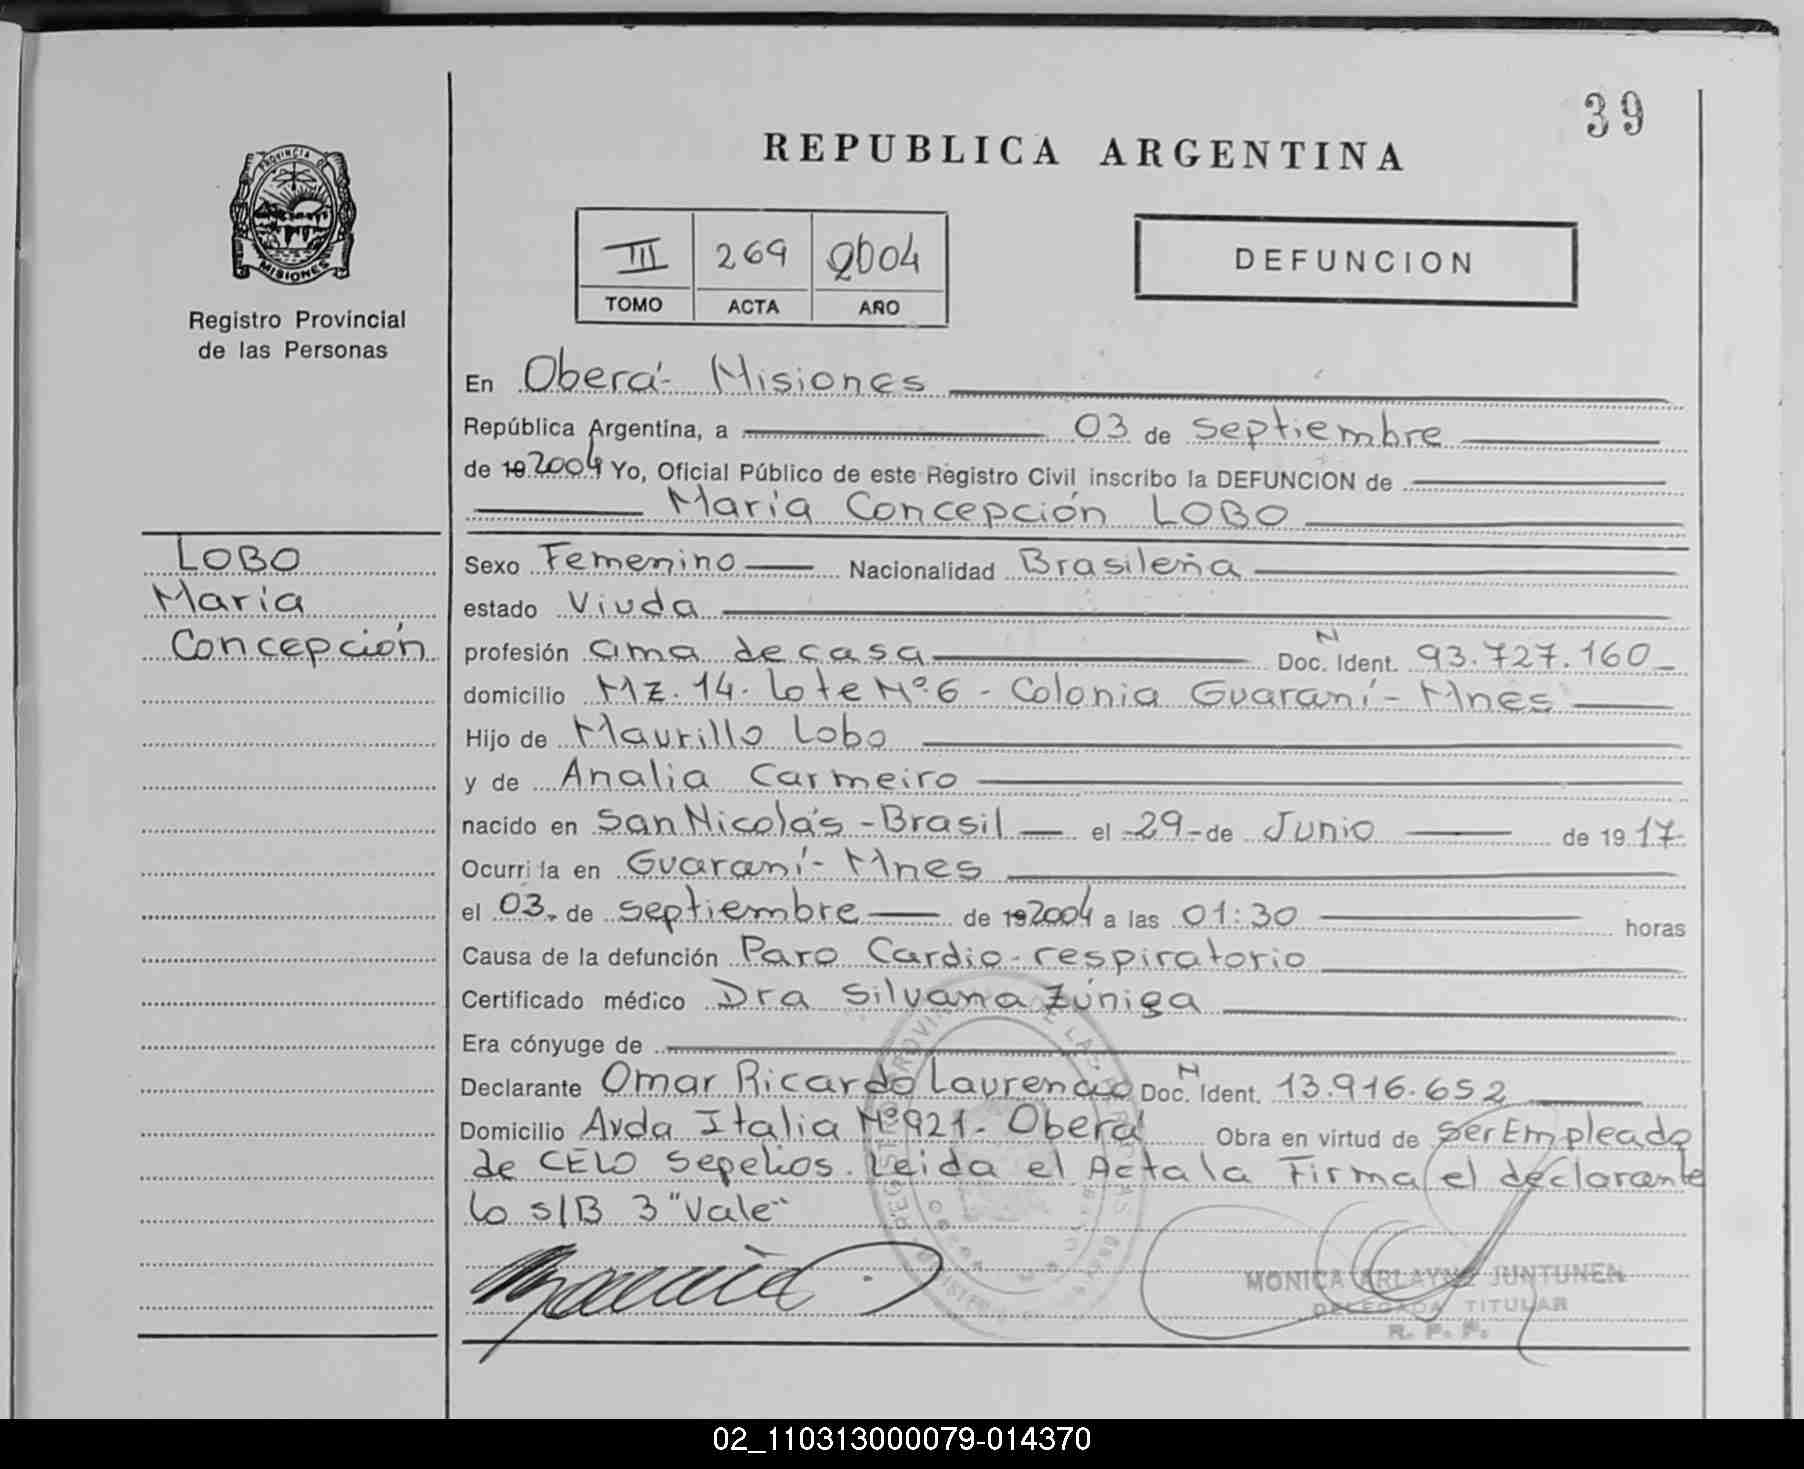 39
REPUBLICA ARGENTINA
PROVINCIA DE
MISIONES
Registro Provincial
de las Personas
III 269 2004
TOMO ACTA AÑO
DEFUNCION
En Oberá - Misiones
República Argentina, a 03 de septiembre
de 19 2004 Yo, Oficial Público de este Registro Civil inscribo la DEFUNCION de
María Concepción LOBO
LOBO
María
Concepción
Sexo Femenino Nacionalidad Brasileña
estado Viuda
profesión ama de casa Doc. N Ident. 93.727.160
domicilio Mz. 14. Lote Nº 6 - Colonia Guaraní - Mnes
Hijo de Maurillo Lobo
y de Analia Carmeiro
nacido en San Nicolás - Brasil el 29 de Junio de 19 17
Ocurrida en Guaraní - Mnes
el 03 de septiembre de 19 2004 a las 01:30 horas
Causa de la defunción Paro Cardio-respiratorio
Certificado médico Dra Silvana Zúniga
Era cónyuge de
Declarante Omar Ricardo Laurencio Doc. N Ident. 13.916.652
Domicilio Avda Italia Nº 921. Oberá Obra en virtud de ser Empleado
de CELO Sepelios. Leida el Acta la Firma el declarante
lo s/B 3 "Vale"
MONICA ARLAYNE JUNTUNEN
DELEGADA TITULAR
R. P. P.
02_110313000079-014370